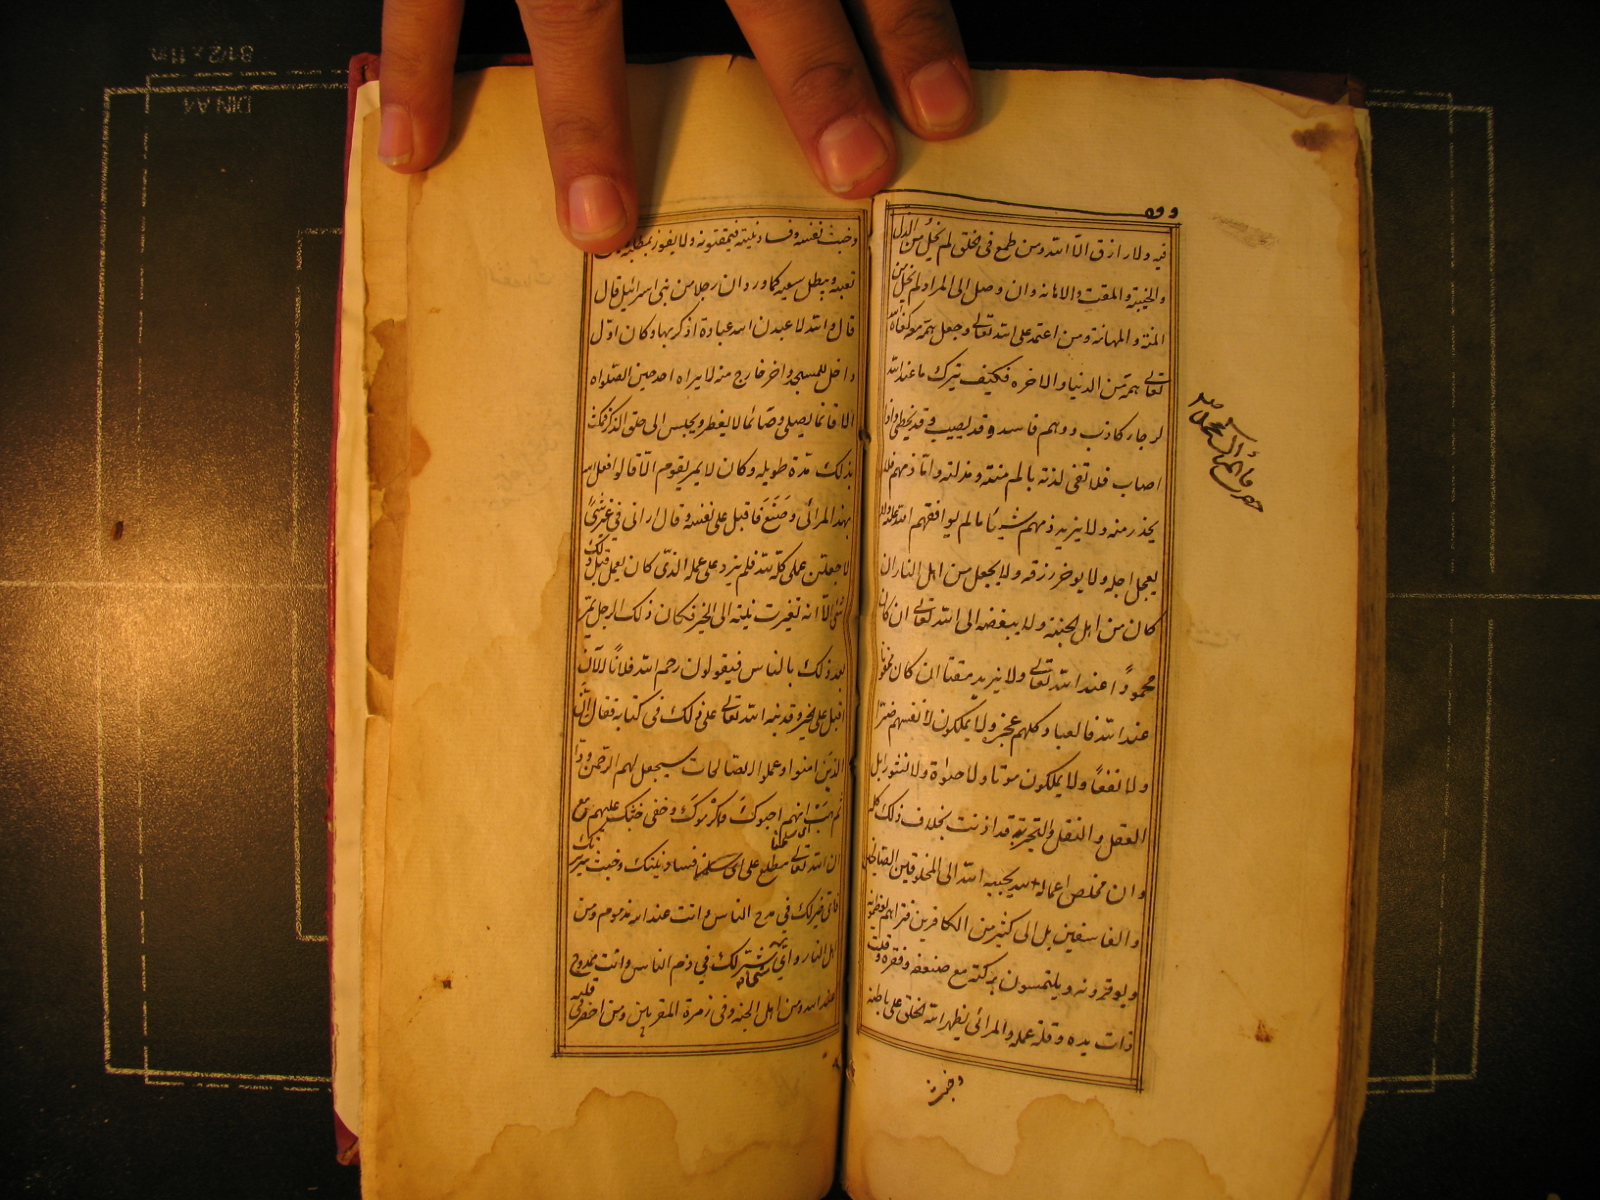 فيه ولا رازق الا الله ومن طمع فى الخلق لم يخل من الذل
والخيبة والمقت والاهانة وان وصل الى المراد لم يخل من
المنة و المهانة ومن اعتمد على الله تعالى وجعل همّه معه كفاه الله
تعالى همه من الدنيا والاخره فكيف يترك ما عند الله
لرجاء كاذب ووهم فاسد وقد يصيب وقد يخطى واذا
اصاب فلا تفى لذته بالم منته ومذلته واما ذمهم فلا
يحذر منه ولا يزيد ذمهم شيئا ما لم يوافقهم الله عليه ولا
يعجل اجله ولا يوخر رزقه ولا يجعل من اهل النار ان
كان من اهل الجنة ولا يبغضه الى الله تعالى ان كان
محمودًا عند الله تعالى ولا يزيد مقتا ان كان ممقوتا
عند الله فالعباد كلهم عجز ولا يملكون لانفسهم ضرا
ولا نفعًا ولا يملكون موتا ولا حيوة ولا نشورا بل
العقل والنقل والتجربة قد اذنت بخلاف ذلك كله
وان مخلص اعماله لله يحببه الله الى المخلوقين الصالحين
والفاسقين بل الى كثير من الكافرين فتراهم يعظمونه
ويوقرونه ويلتمسون بركته مع ضعفه وفقره وقلت
ذات يده وقلة عمله والمرائى يظهر الله الخلق على باطنه
وخبث
وخبث نفسه وفساد نيته فيمقتونه ولا يفوز بمطلبه
تعبه ويبطل سعيه كما ورد ان رجلا من بنى اسرائيل قال
قال والله لاعبدن الله عبادة اذكر بها وكان اوّل
داخل للمسجد واخر خارج منه لا يراه احد حين الصلواه
الا قائما يصلى وصائما لا يفطر ويجلس الى حلق الذكر فمكث
بذلك مدة طويله وكان لا يمر بقوم الّا قالوا فعل الله
بهذا المرائى وصَنَعَ فاقبل على نفسه وقال ارانى فى غير شئ
لاجعلن عملى كله لله فلم يزد على عمله الذّى كان يعمل قبل ذلك
شئ الّا انه تغيرت نيته الى الخير فكان ذلك الرجل يمر
بعد ذلك بالناس فيقولون رحم الله فلانًا الآن
اقبل على الخير وقد نبه الله تعالى على ذلك فى كتابه فقال ان
الذين امنوا وعملوا الصالحات سيجعل لهم الرحمن ودّا
ثم هَبْ انهم احبوكَ واكرموكَ وخفى خبثك عليهم مع
ان الله تعالى مطلع على فساد نيتك وخبث سريرتك
فاى خير لك فى مدح الناس وانت عند الله مذموم ومن
اهل النار واىّ شر لك فى ذم الناس وانت ممدوح
عند الله ومن اهل الجنه وفى زمرة المقربين ومن احضر فى قلبه